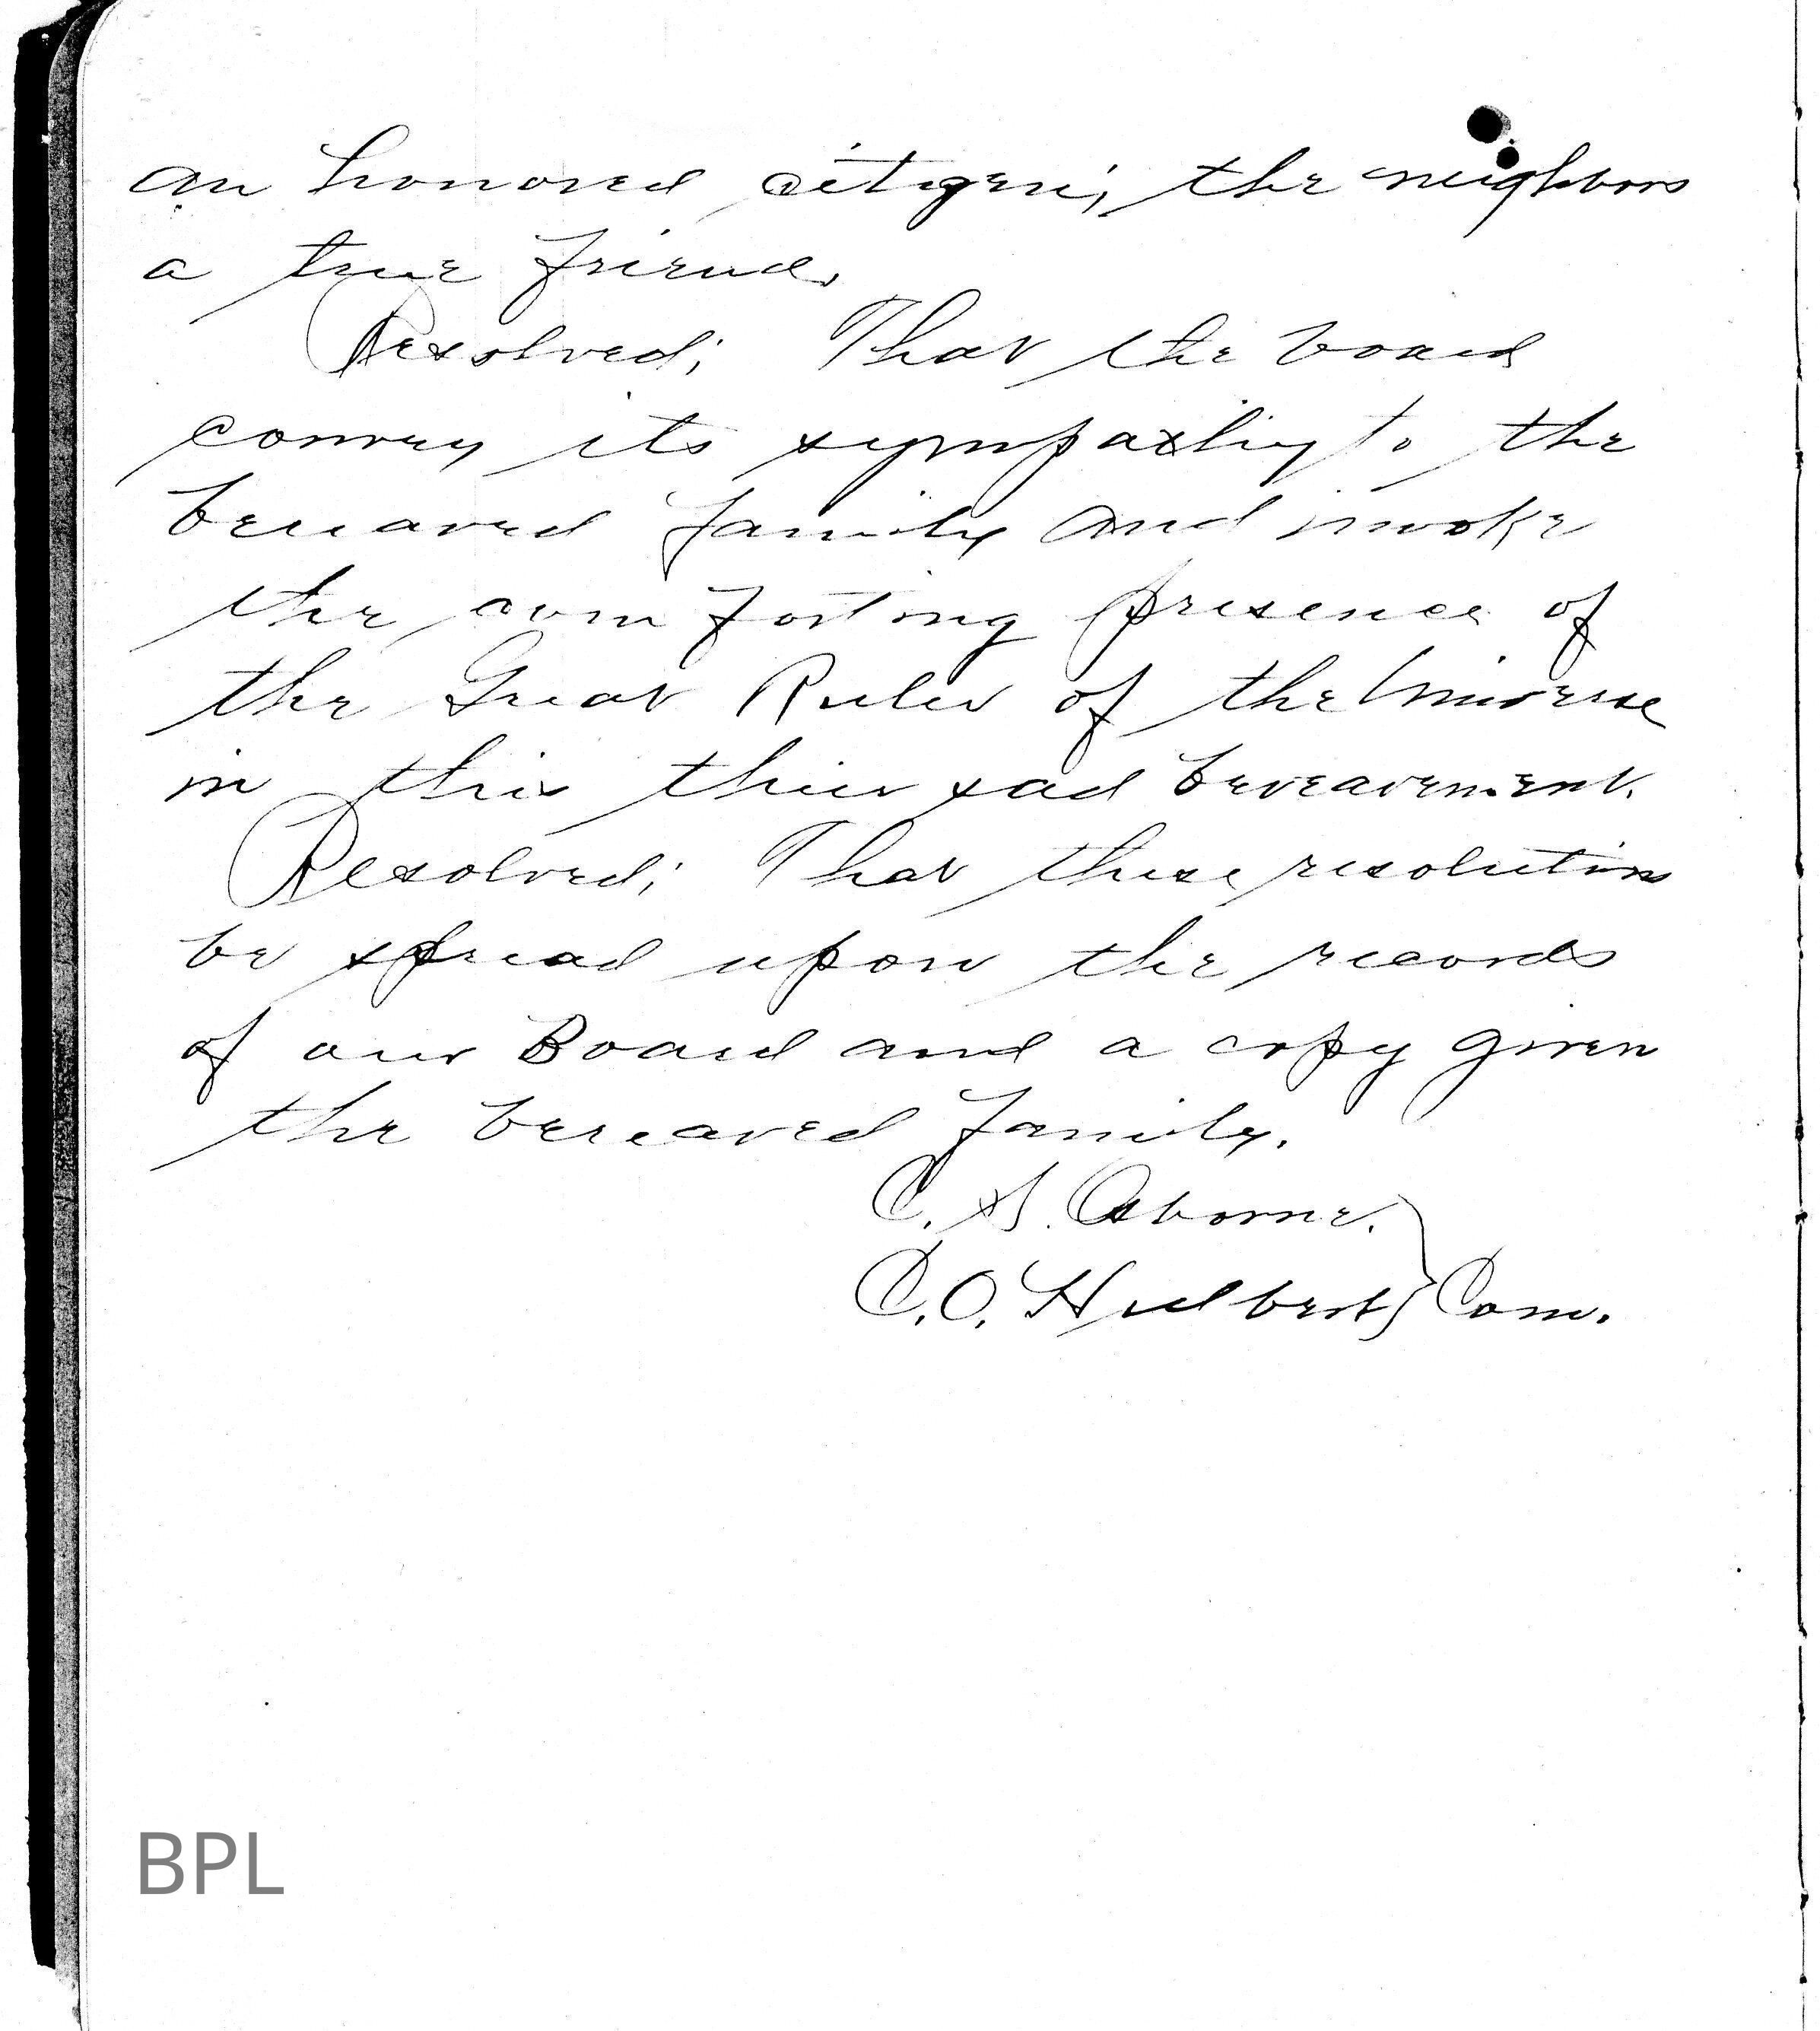 an honored citizen; the neighbors
a true friend.
Resolved; That the board
convey its sympathy to the
bereaved family and invoke
the comforting presence of
the Great Ruler of the Universe
in this thier sad bereavement.
Resolved; That these resolutions
be spread upon the records
of our Board and a copy given
the bereaved family.
C. S. Osborne.
C. O. Hulbert } Com.
BPL